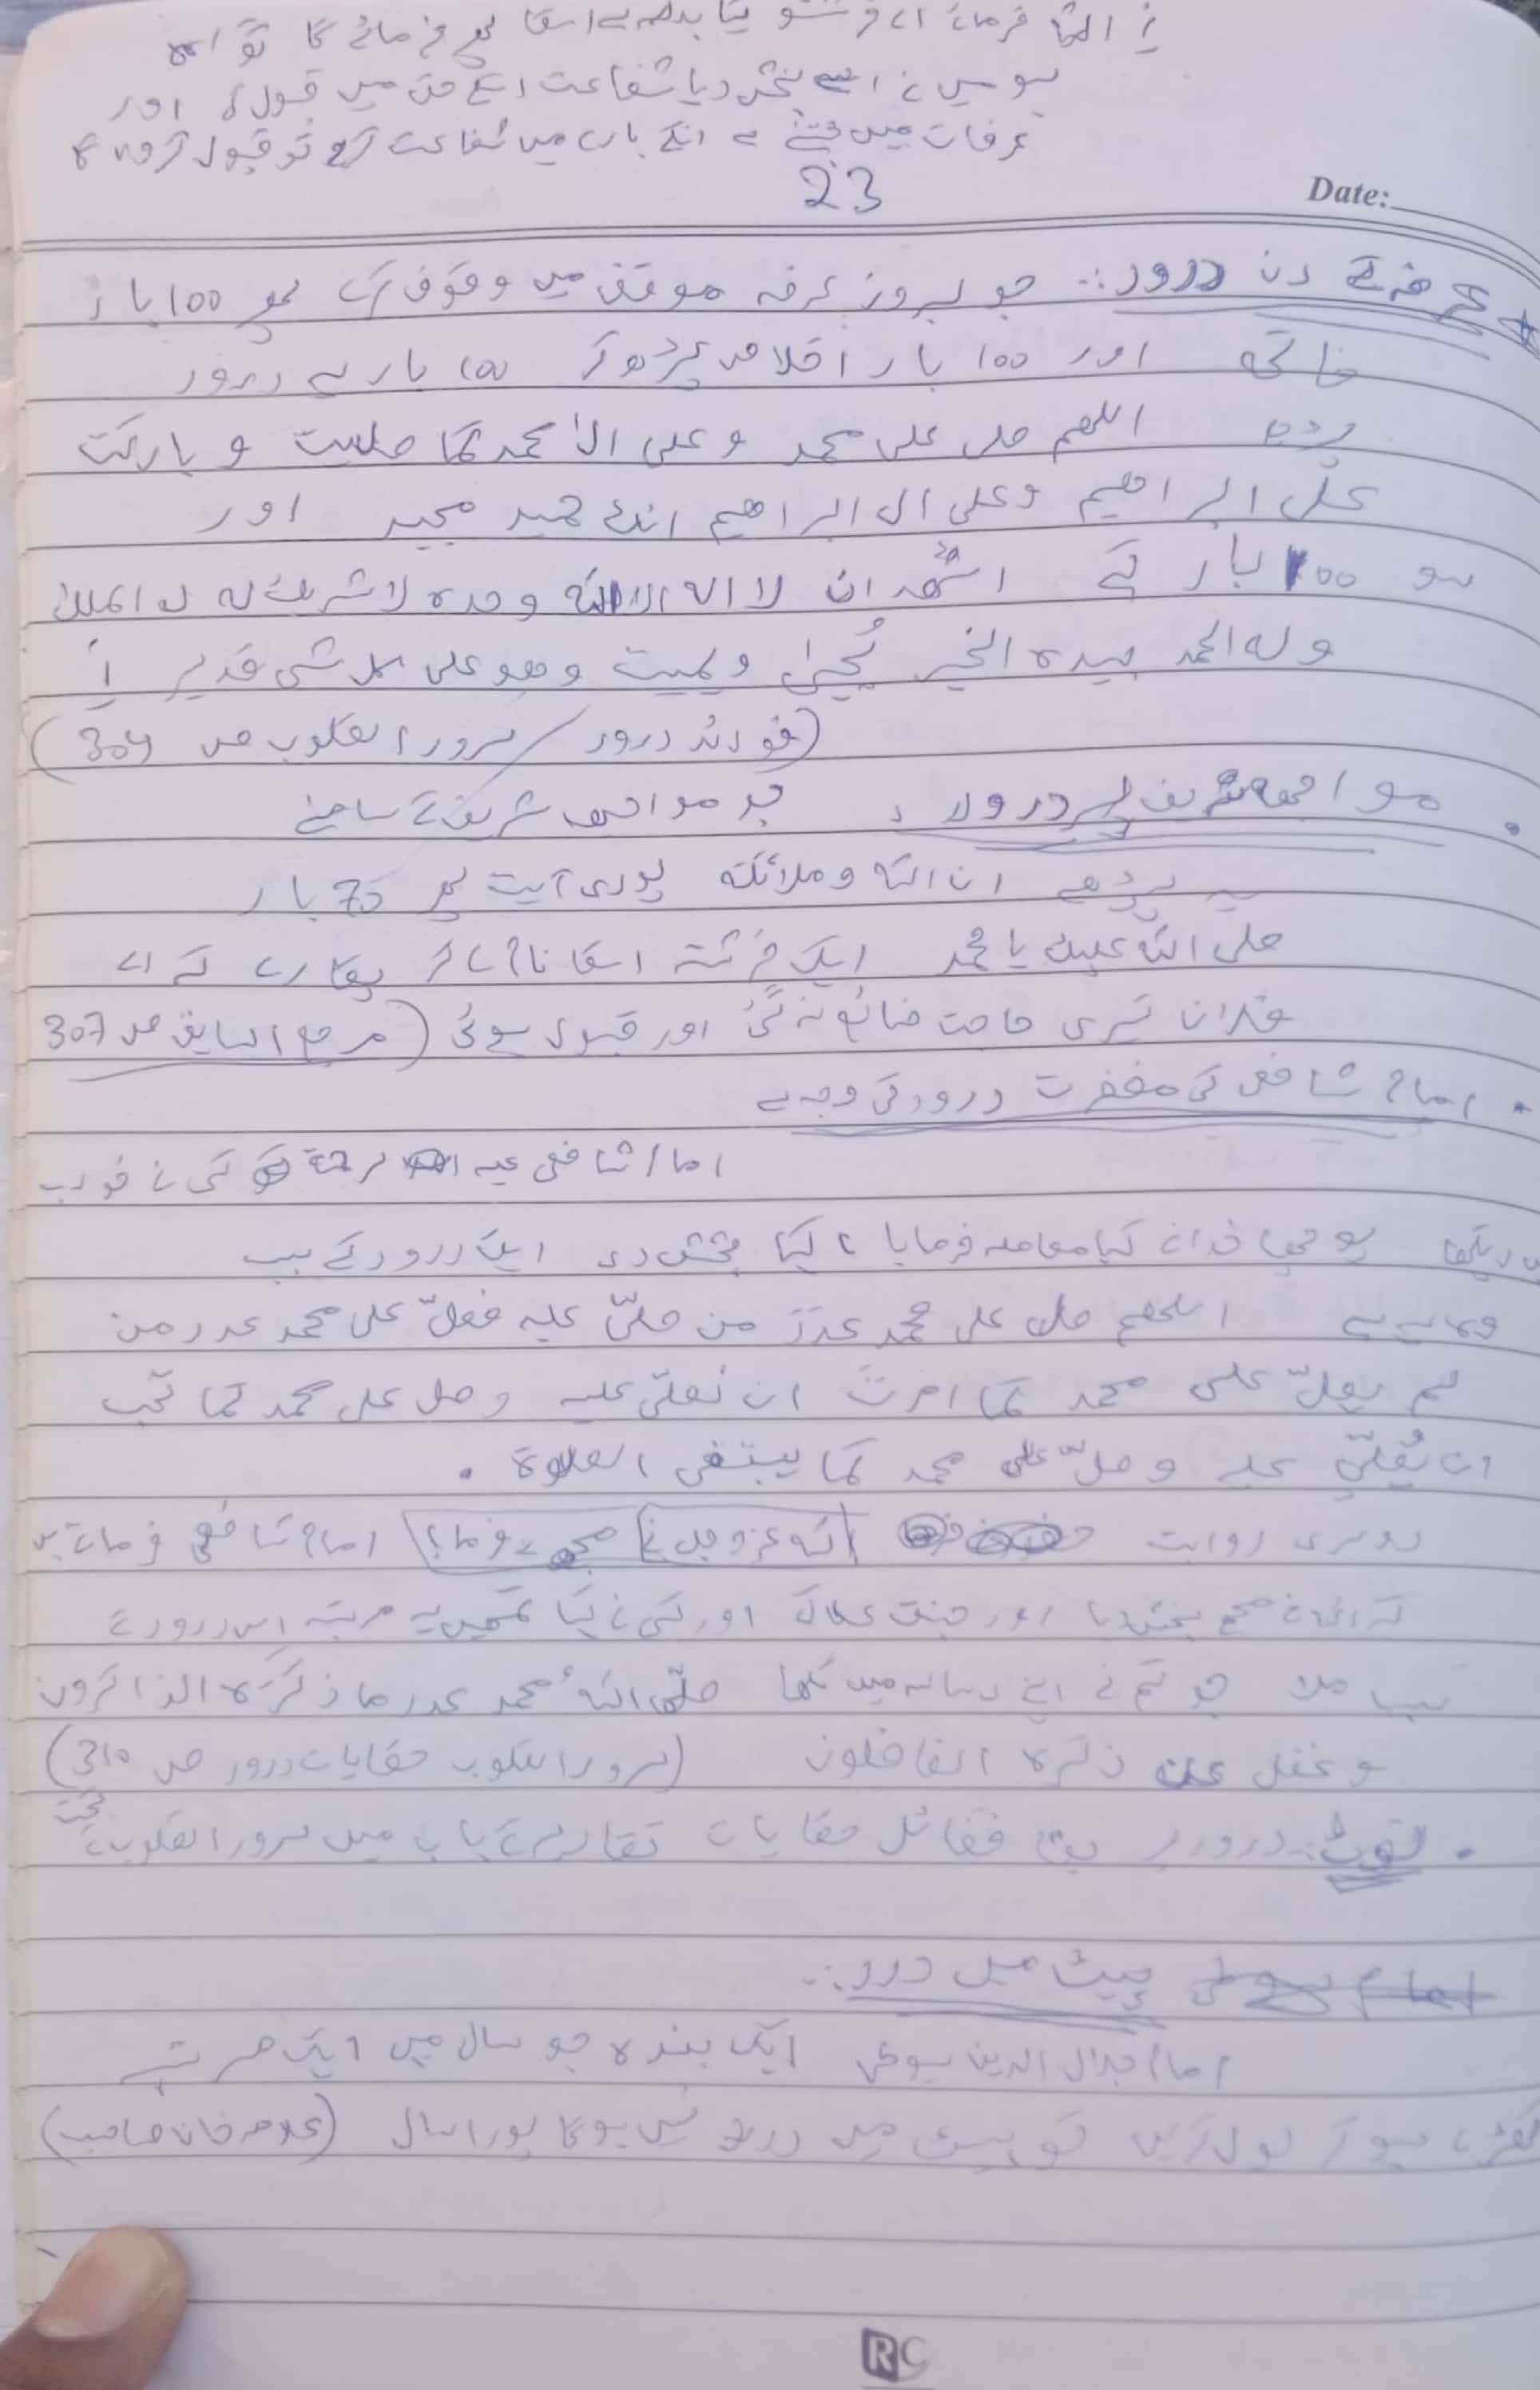 اللہ فرمائے اے فرشتو کیا بدلہ ہے اسکا پھر فرمائے گا تو گواہ
ہو میں نے اسے بخش دیا شفاعت اسکے حق میں قبول کی اور
عرفات میں جتنے ہے انکے بارے میں شفاعت کرے تو قبول کروں گا
23
Date:
عرفہ کے دن درود:۔ جو بروز عرفہ موقف میں وقوف کرے پھر 100 بار
فاتحہ اور 100 بار اخلاص پڑھ کر 100 بار یہ درود
پڑھے اللھم صل علی محمد وعلی ال محمد کما صلیت و بارکت
علی ابراھیم وعلی ال ابراھیم انک حمید مجید اور
100 بار کہے اشھد ان لا الہ الا اللہ وحدہ لا شریک لہ لہ الملک
ولہ الحمد بیدہ الخیر یُحیی ویمیت وھو علی کل شی قدیر
(فوائد درود / سرور القلوب ص 304)
مواجھہ شریف پر درود: جو مواجھہ شریف کے سامنے
یہ پڑھے ان اللہ وملائکتہ پوری آیت پھر 70 بار
صلی اللہ علیک یا محمد ایک فرشتہ اسکا نام لے کر پکارے کہ اے
فلان تیری حاجت ضائع نہ گئی اور قبول ہوئی (مرجع السابق ص 307
امام شافعی کی مغفرت درود کی وجہ سے
امام شافعی علیہ الرحمۃ کو کسی نے خواب
میں دیکھا پوچھا خدا نے کیا معاملہ فرمایا؟ کہا بخش دی ایک درود کے سبب
وہ یہ ہے اللھم صل علی محمد عدد من صلیّ علیہ فصلّ علی محمد عدد من
لم یصلّ علی محمد کما امرت ان نصلّی علیہ وصل علی محمد کما تحب
ان یُصلّی علیہ وصلّ علی محمد کما یبتغی الصلاۃ ۔
دوسری روایت اللہ عزوجل نے مجھے امام شافعی فرماتے ہیں
کہ اللہ نے مجھے بخش دیا اور جنت عطا کی اور کسی نے کہا تمھیں یہ مرتبہ اس درود کے
سبب ملا جو تم نے اپنے رسالہ میں لکھا صلّی اللہُ محمد عدد ما ذکرَہ الذاکرون
و غفل عن ذکرہ الغافلون (سرور القلوب حکایات درود ص 310)
نوٹ: درود پر فضائل حکایات باب میں سرور القلوب
امام سیوطی پیٹ میں درد:۔
امام جلال الدین سیوطی ایک بندہ جو سال میں ایک مرتبہ
کھڑے ہو کر بول کریں تو پیٹ میں درد نہیں ہوگا پورا سال
RC